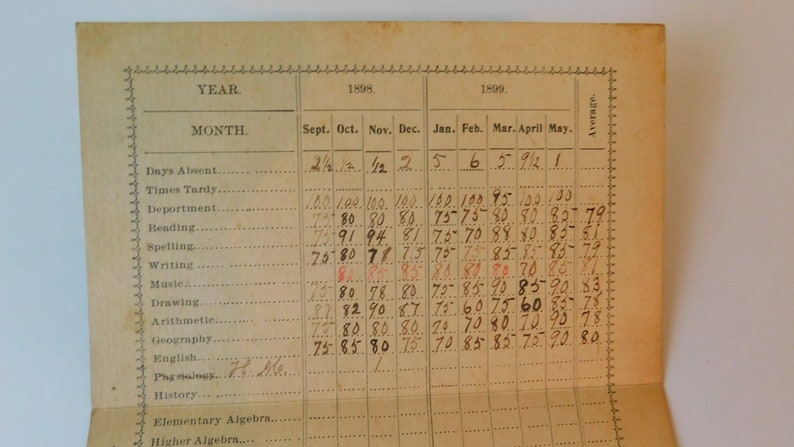 YEAR. 1898. 1899. Average.
MONTH. Sept. Oct. Nov. Dec. Jan. Feb. Mar. April May.
Days Absent 2½ ½ ½ 2 5 6 5 9½ 1
Times Tardy
Deportment 100 100 100 100 100 100 95 100 100
Reading 75 80 80 80 75 75 80 80 85 79
Spelling 75 91 94 81 75 70 88 80 85 81
Writing 75 80 78 75 75 75 85 75 85 79
Music 80 85 85 80 80 80 70 85 81
Drawing 75 80 78 80 75 85 90 85 90 83
Arithmetic 82 90 87 75 60 75 60 85 78
Geography 75 80 80 80 70 70 80 70 90 78
English 75 85 80 75 70 85 85 75 90 80
Physiology
History
Elementary Algebra
Higher Algebra